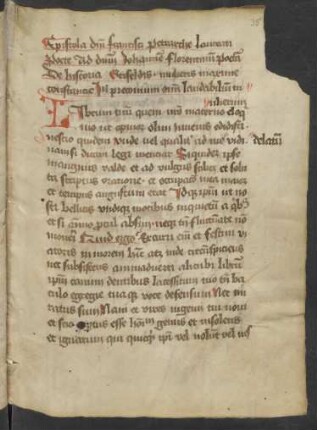 Epistola dni francisci petrarche laureati
poete Ad dnm Johannem Florentinum poetam
De historia Griseldis mulieris maxime
constancie In preconium omnium laudabilium
mulierum
Librum tuum quem nostro materno eloquio
ut opinor olim iuvenis edidisti
nescio quidem unde vel qualiter ad me delatum vidi
nam si dicam legi menciar Siquidem ipse
magnus valde et ad vulgus scilicet et soluta
scriptus oracione et occupacio mea maior
et tempus angustum erat Idque ipsum ut nosti
bellicis undique motibus inquietum a quibus
et si animo procul absim nequeo tamen fluctuante re publica non
moveri Quid ergo Excucurri eum et festini viatoris
in morem hinc atque inde circumspiciens
nec subsistens animadverti alicubi librum
ipsum canum dentibus lacessitum tuo tamen baculo
egregie tuaque voce defensum Nec miratus
sum Nam et vires ingenii tui novi
et scio expertus esse hominum genus et insolens
et ignavum qui quicquid ipsi vel nolunt vel nesciunt